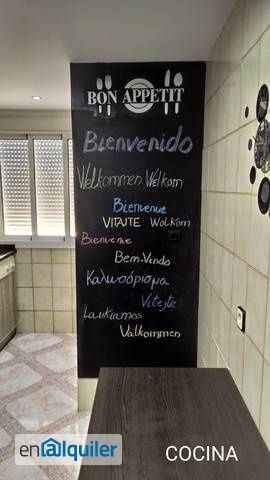 BON APPETIT
Bienvenido
Welkommen Welkom
Bienvenue
VITAJTE Wolkom
Bienvenue
Bem-Vindo
Καλωσόρισμα
Vitejte
Laukiamas
Valkommen
enalquiler
COCINA